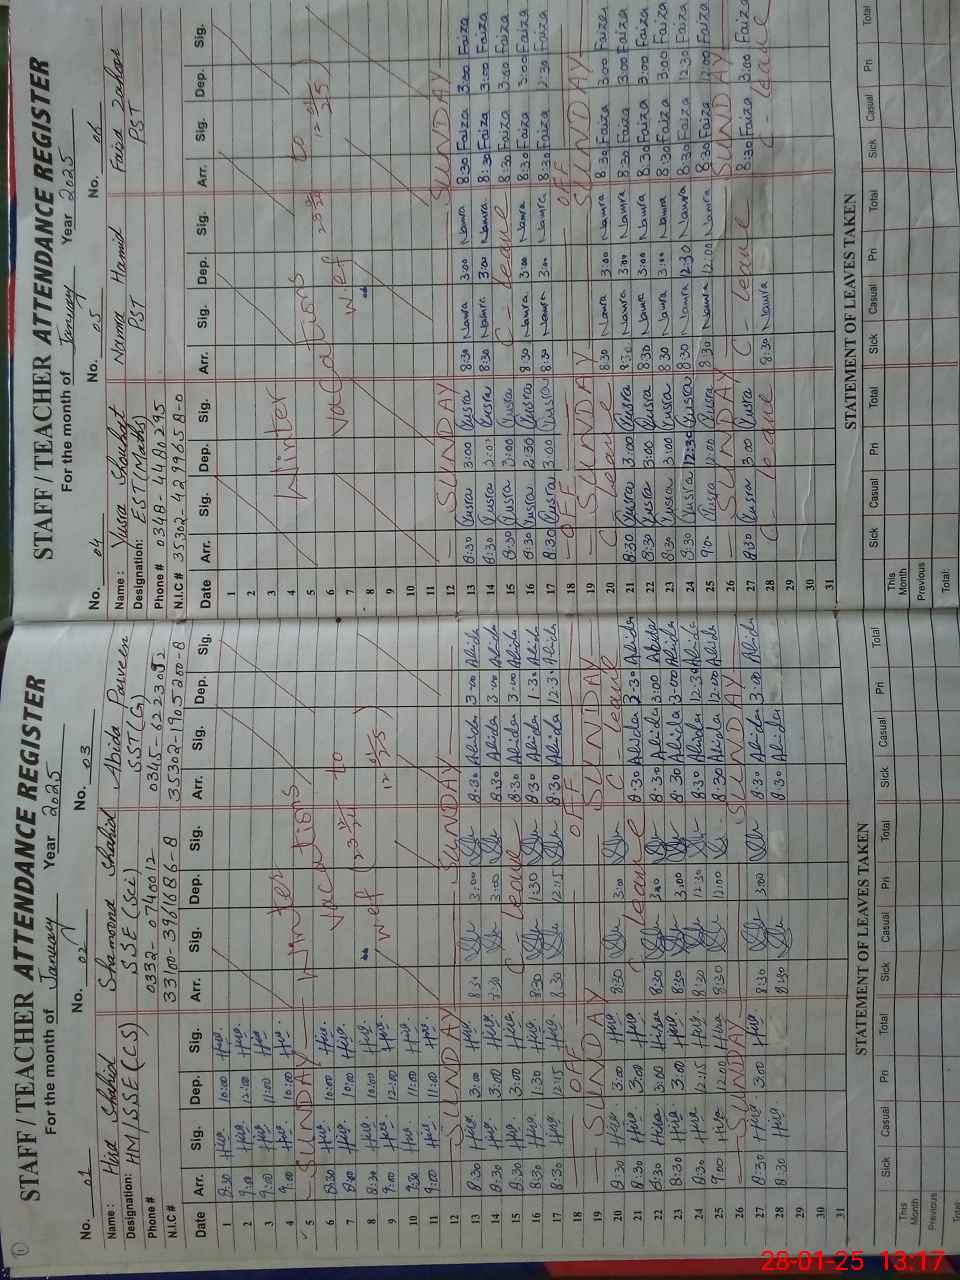 STAFF / TEACHER ATTENDANCE REGISTER
For the month of January Year 2025
No. 01 No. 02 No. 03
Name: Hira Shahid Shamoona Shahid Abida Parveen
Designation: HM/SSE(CS) SSE(Sci) SST(G)
Phone # 0332-0740012
N.I.C # 33100-3961686-8 35302-1905200-8
Date Arr. Sig. Dep. Sig. Arr. Sig. Dep. Sig. Arr. Sig. Dep. Sig.
1 8:30 Hira 10:00 Hira
2 9:00 Hira 12:00 Hira
3 9:00 Hira 11:00 Hira
4 9:00 Hira 10:00 Hira Winter
5 SUNDAY Vacations
6 8:30 Hira 10:00 Hira to
7 8:00 Hira 10:00 Hira
8 8:30 Hira 10:00 Hira wef
9 9:00 Hira 12:00 Hira
10 9:30 Hira 11:00 Hira
11 9:00 Hira 11:00 Hira
12 SUNDAY SUNDAY
13 8:30 Hira 3:00 Hira 8:30 3:00 8:30 Abida 3:00 Abida
14 8:30 Hira 3:00 Hira 3:00 8:30 Abida 3:00 Abida
15 8:30 Hira 3:00 Hira C - leave 8:30 Abida 3:00 Abida
16 8:30 Hira 1:30 Hira 8:30 1:30 8:30 Abida 1:30 Abida
17 8:30 Hira 12:15 Hira 8:30 12:15 8:30 Abida 12:30 Abida
18 OFF OFF
19 SUNDAY SUNDAY
20 8:30 Hira 3:00 Hira 8:30 3:00 C leave
21 8:30 Hira 3:00 Hira C leave 8:30 Abida 2:30 Abida
22 8:30 Hira 3:00 Hira 8:30 3:00 8:30 Abida 3:00 Abida
23 8:30 Hira 3:00 Hira 8:30 3:00 8:30 Abida 3:00 Abida
24 8:30 Hira 12:15 Hira 8:30 12:30 8:30 Abida 12:30 Abida
25 9:00 Hira 12:00 Hira 8:30 12:00 8:30 Abida 12:00 Abida
26 SUNDAY SUNDAY
27 8:30 Hira 3:00 Hira 8:30 3:00 8:30 Abida 3:00 Abida
28 8:30 Hira 8:30 8:30 Abida
29
30
31
STATEMENT OF LEAVES TAKEN
Sick Casual Pri Total Sick Casual Pri Total Sick Casual Pri Total
This Month
Previous
Total
STAFF / TEACHER ATTENDANCE REGISTER
For the month of January Year 2025
No. 04 No. 05 No. 06
Name: Yusra Shoukat Namra Hamid Faiza Zahoor
Designation: EST(Maths) PST PST
Phone # 0348-4480295
N.I.C # 35302-4299658-0
Date Arr. Sig. Dep. Sig. Arr. Sig. Dep. Sig. Arr. Sig. Dep. Sig.
1
2
3
4 Winter Vacations to
5
6 Vacations
7 wef
8
9
10
11
12 SUNDAY SUNDAY
13 8:30 Yusra 3:00 Yusra 8:30 Namra 3:00 Namra 8:30 Faiza 3:00 Faiza
14 8:30 Yusra 3:00 Yusra 8:30 Namra 3:00 Namra 8:30 Faiza 3:00 Faiza
15 8:30 Yusra 3:00 Yusra C - leave 8:30 Faiza 3:00 Faiza
16 8:30 Yusra 2:30 Yusra 8:30 Namra 3:00 Namra 8:30 Faiza 3:00 Faiza
17 8:30 Yusra 3:00 Yusra 8:30 Namra 3:00 Namra 8:30 Faiza 2:30 Faiza
18 OFF OFF
19 SUNDAY SUNDAY
20 C leave 8:30 Namra 3:00 Namra 8:30 Faiza 3:00 Faiza
21 8:30 Yusra 3:00 Yusra 8:30 Namra 3:00 Namra 8:30 Faiza 3:00 Faiza
22 8:30 Yusra 3:00 Yusra 8:30 Namra 3:00 Namra 8:30 Faiza 3:00 Faiza
23 8:30 Yusra 3:00 Yusra 8:30 Namra 3:00 Namra 8:30 Faiza 3:00 Faiza
24 8:30 Yusra 12:30 Yusra 8:30 Namra 12:30 Namra 8:30 Faiza 12:30 Faiza
25 Yusra 12:00 Yusra 8:30 Namra 12:00 Namra 8:30 Faiza 12:00 Faiza
26 SUNDAY SUNDAY
27 8:30 Yusra 3:00 Yusra C - leave 8:30 Faiza 3:00 Faiza
28 C - leave 8:30 Namra C - leave
29
30
31
STATEMENT OF LEAVES TAKEN
Sick Casual Pri Total Sick Casual Pri Total Sick Casual Pri Total
This Month
Previous
Total:
28-01-25 13:17